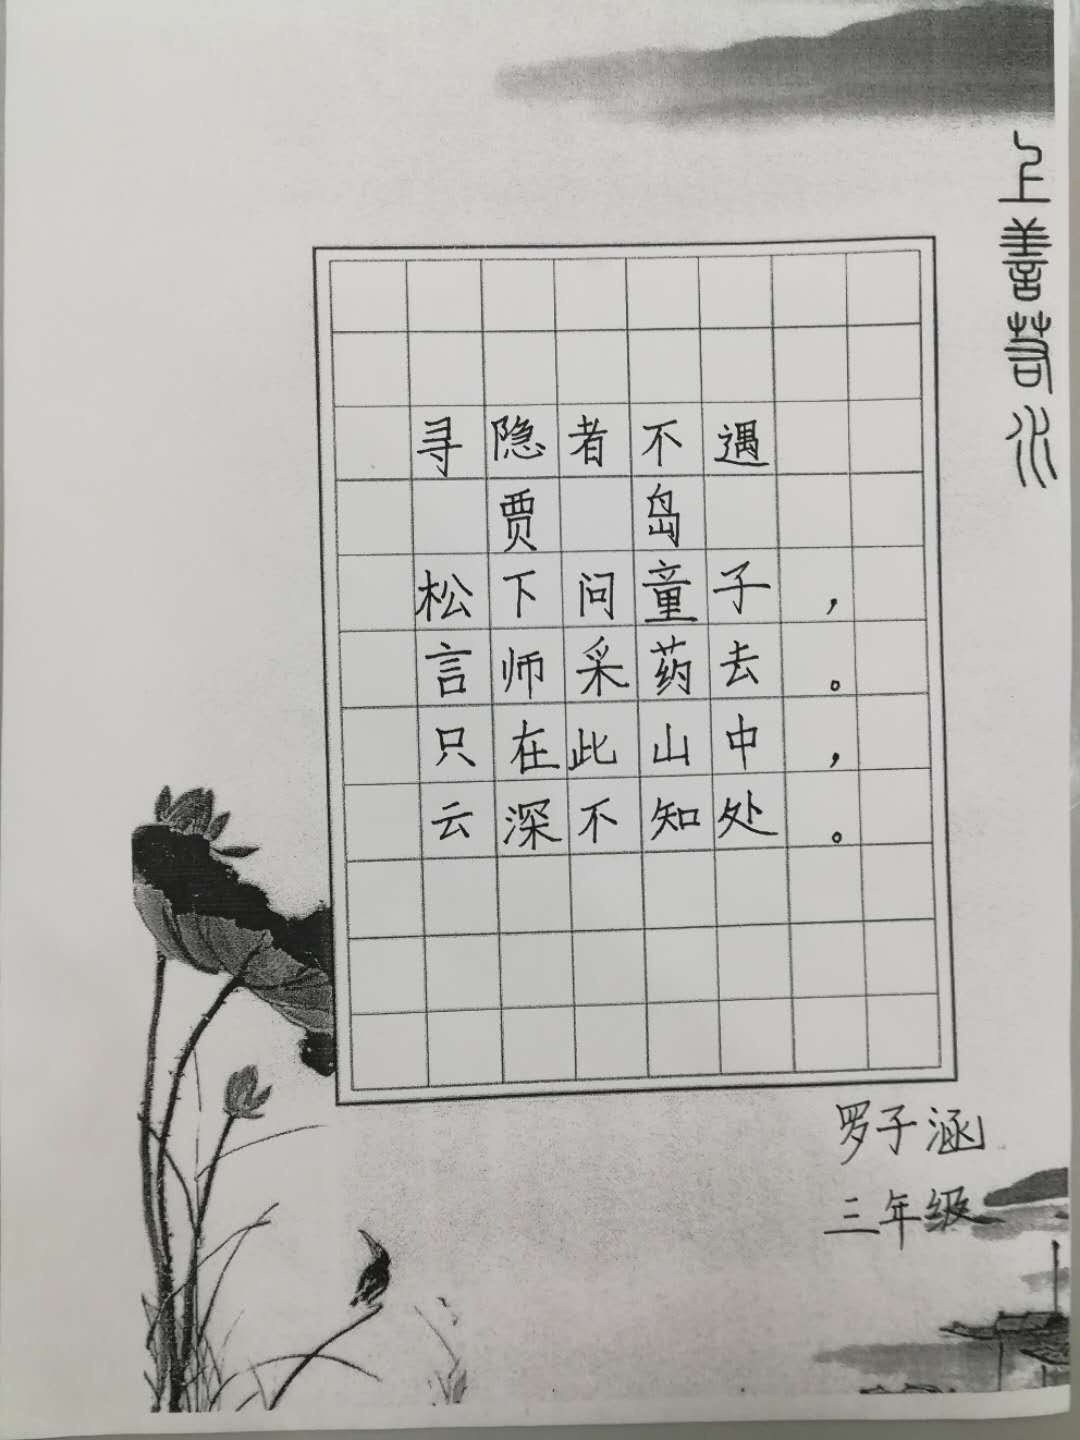 上善若水
寻隐者不遇
贾岛
松下问童子，
言师采药去。
只在此山中，
云深不知处。
罗子涵
三年级